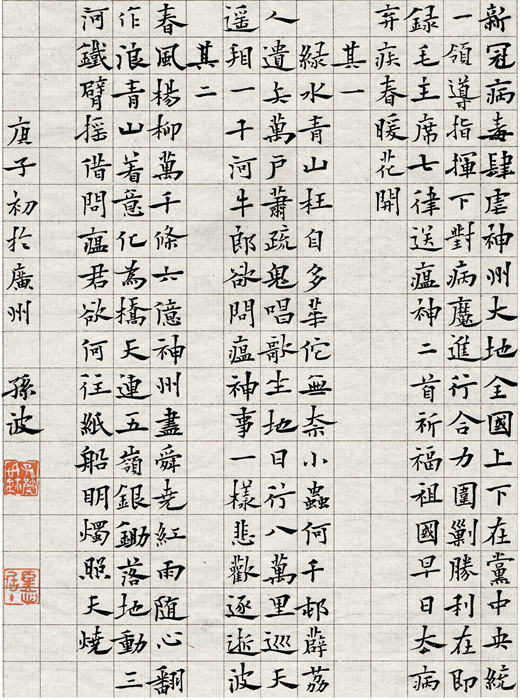 新冠病毒肆虐神州大地全國上下在黨中央統
一領導指揮下對病魔進行合力圍剿勝利在即
録毛主席七律送瘟神二首祈福祖國早日去病
弃疾春暖花開
其一
緑水青山枉自多華佗無奈小蟲何千邨薜荔
人遺矢萬户蕭疏鬼唱歌坐地日行八萬里巡天
遥相一千河牛郎欲問瘟神事一樣悲歡逐逝波
其二
春風楊柳萬千條六億神州盡舜尭紅雨随心翻
作浪青山着意化為橋天連五嶺銀鋤落地動三
河鐵臂摇借問瘟君欲何往紙船明燭照天燒
庚子初於廣州 孫波